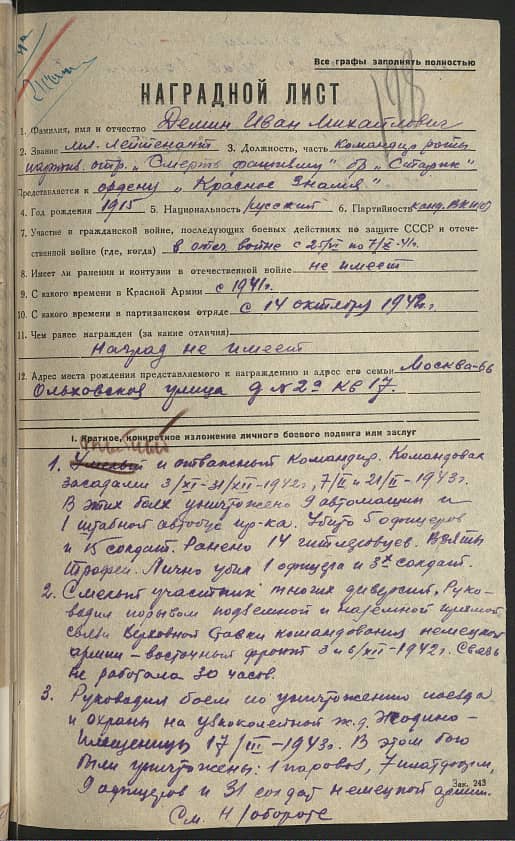 Все графы заполнять полностью
198
НАГРАДНОЙ ЛИСТ
1. Фамилия, имя и отчество Демин Иван Михайлович
2. Звание мл. лейтенант 3. Должность, часть Командир роты
партив. отр. „Смерть фашизму" бр. „Старик"
Представляется к ордену „Красное Знамя"
4. Год рождения 1915 5. Национальность русский 6. Партийность канд. ВКП(б)
7. Участие в гражданской войне, последующих боевых действиях по защите СССР и отече-
ственной войне (где, когда) в отеч войне с 25/VI по 7/X-41г.
8. Имеет ли ранения и контузии в отечественной войне не имеет
9. С какого времени в Красной Армии с 1941г.
10. С какого времени в партизанском отряде с 14 октября 1942г.
11. Чем ранее награжден (за какие отличия)
Наград не имеет
12. Адрес места рождения представляемого к награждению и адрес его семьи Москва-66
Ольховская улица д N 29 кв 17.
I. Краткое, конкретное изложение личного боевого подвига или заслуг
1. Умелый и отважный командир. Командовал
засадами 3/XI-31/XII-1942г, 7/II и 21/II-1943г.
В этих боях уничтожено 9 автомашин и
1 штабной автобус пр-ка. Убито 5 офицеров
и 15 солдат. Ранено 14 гитлеровцев. Взяты
трофеи. Лично убил 1 офицера и 3х солдат.
2. Смелый участник многих диверсий. Руко-
водил порывом подземной и наземной прямой
связи Верховной Ставки командования немецкой
армии – восточный фронт 3 и 6/XII-1942г. Связь
не работала 30 часов.
3. Руководил боем по уничтожению поезда
и охраны на узкоколейной ж.д. Жодино –
Плещеницы 17/III-1943г. В этом бою
были уничтожены: 1 паровоз, 7 платформ,
9 офицеров и 31 солдат немецкой армии.
Зак. 243
См. Н/обороте